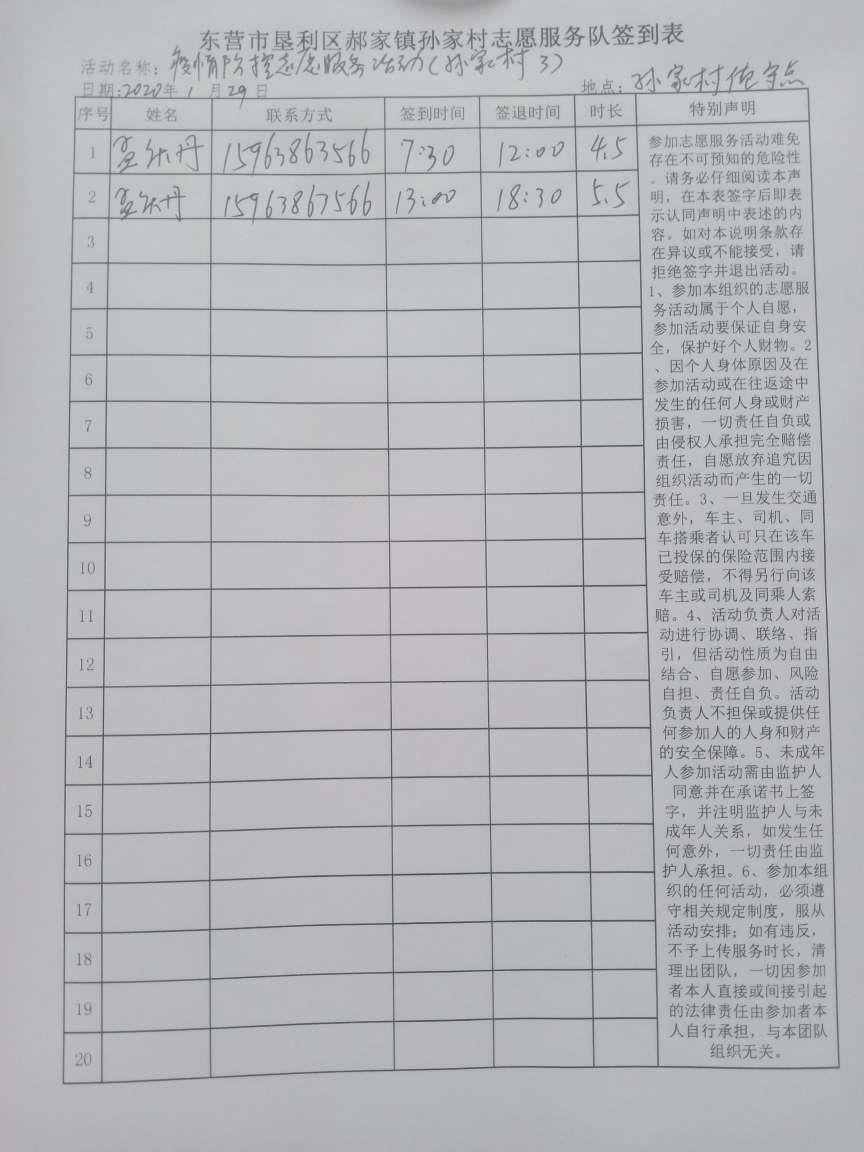 东营市垦利区郝家镇孙家村志愿服务队签到表
活动名称：疫情防控志愿服务活动（孙家村3）
日期：2020年1月29日 地点：孙家村值守点
序号 姓名 联系方式 签到时间 签退时间 时长 特别声明
1 15963863566 7:30 12:00 4.5
2 15963863566 13:00 18:30 5.5
3
4
5
6
7
8
9
10
11
12
13
14
15
16
17
18
19
20
参加志愿服务活动难免
存在不可预知的危险性
。请务必仔细阅读本声
明，在本表签字后即表
示认同声明中表述的内
容。如对本说明条款存
在异议或不能接受，请
拒绝签字并退出活动。
1、参加本组织的志愿服
务活动属于个人自愿，
参加活动要保证自身安
全，保护好个人财物。2
、因个人身体原因及在
参加活动或在往返途中
发生的任何人身或财产
损害，一切责任自负或
由侵权人承担完全赔偿
责任，自愿放弃追究因
组织活动而产生的一切
责任。3、一旦发生交通
意外，车主、司机、同
车搭乘者认可只在该车
已投保的保险范围内接
受赔偿，不得另行向该
车主或司机及同乘人索
赔。4、活动负责人对活
动进行协调、联络、指
引，但活动性质为自由
结合、自愿参加、风险
自担、责任自负。活动
负责人不担保或提供任
何参加人的人身和财产
的安全保障。5、未成年
人参加活动需由监护人
同意并在承诺书上签
字，并注明监护人与未
成年人关系，如发生任
何意外，一切责任由监
护人承担。6、参加本组
织的任何活动，必须遵
守相关规定制度，服从
活动安排；如有违反，
不予上传服务时长，清
理出团队，一切因参加
者本人直接或间接引起
的法律责任由参加者本
人自行承担，与本团队
组织无关。